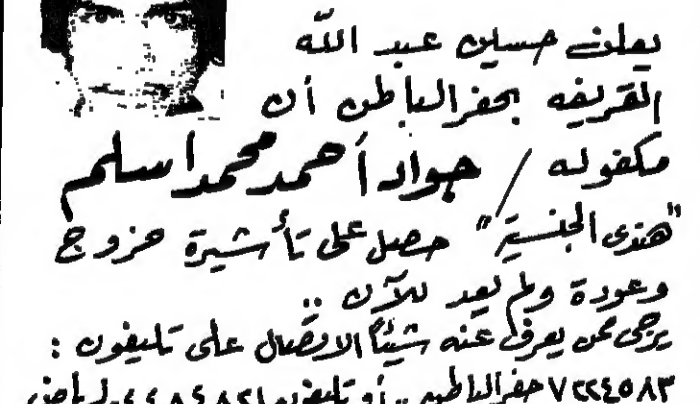 يعلن حسين عبد الله
القريفه بحفر الباطن أن
مكفوله / جواد أحمد محمد اسلم
"هندى الجنسية" حصل على تأشيرة خروج
وعودة ولم يعد للآن ..
يرجى ممن يعرف عنه شيئاً الاتصال على تليفون :
٧٢٢٤٥٨٣ حفر الباطن .. أو تليفون